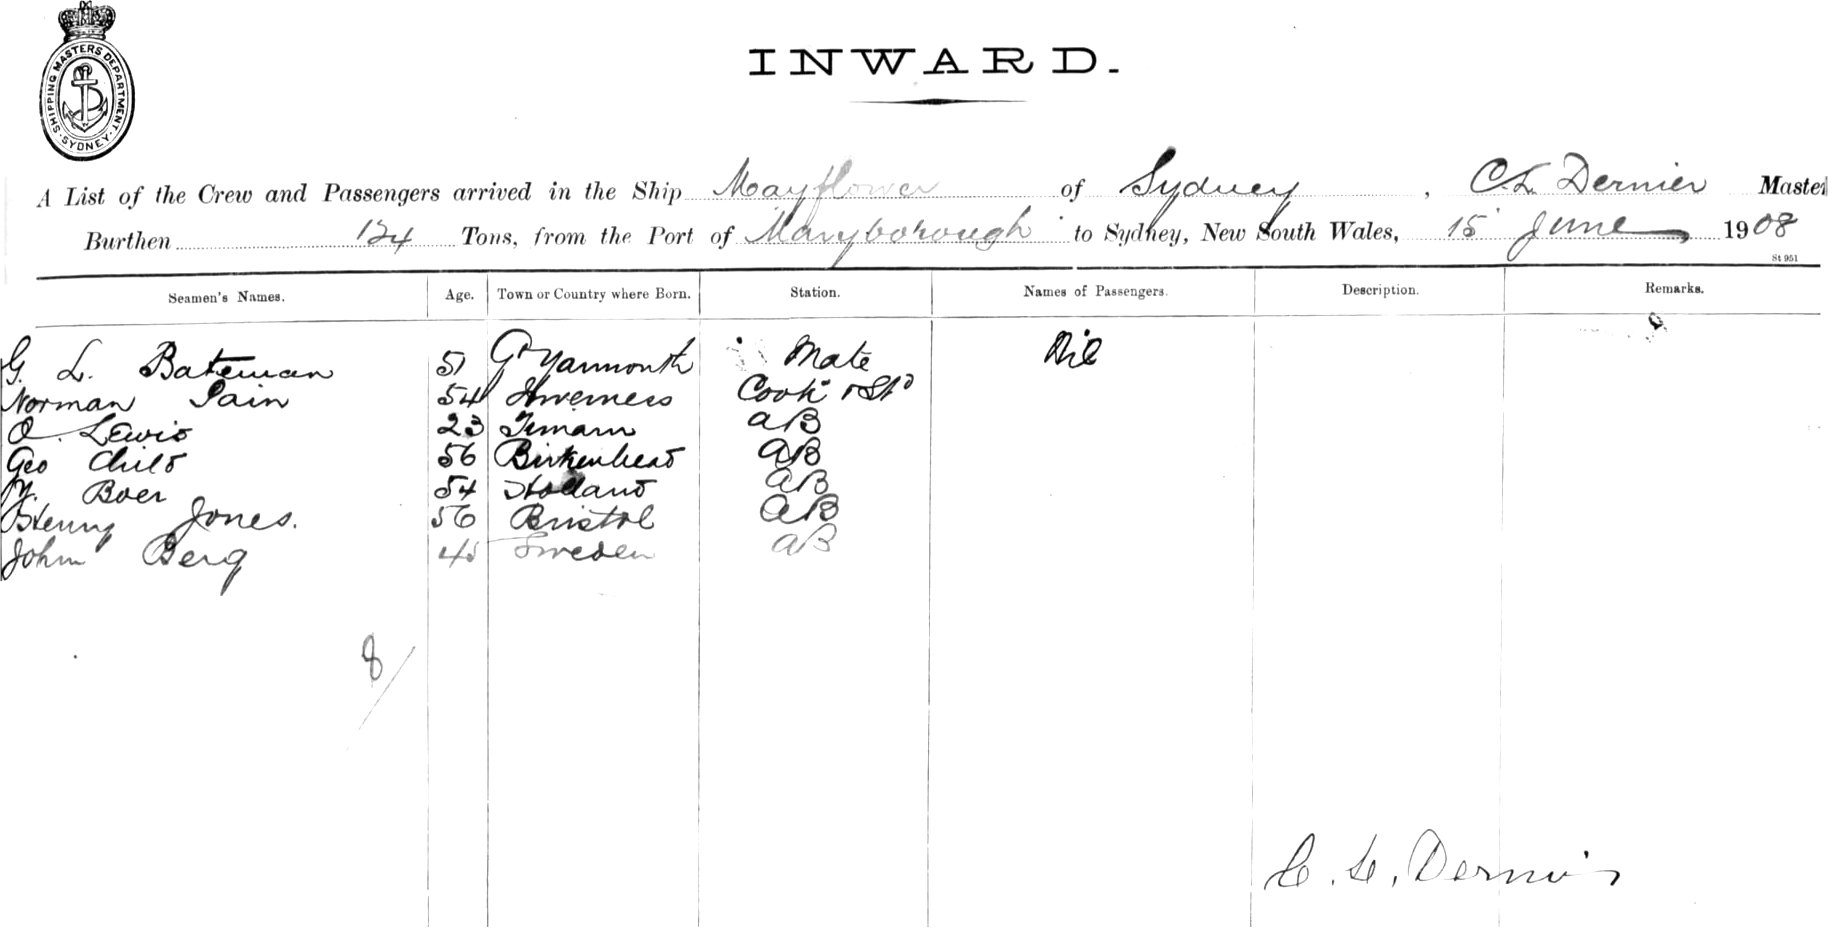 SHIPPING MASTERS DEPARTMENT · SYDNEY ·
INWARD.
A List of the Crew and Passengers arrived in the Ship Mayflower of Sydney, C. L. Dernier Master
Burthen 124 Tons, from the Port of Maryborough to Sydney, New South Wales, 15 June 1908
St 951
Seamen's Names. Age. Town or Country where Born. Station. Names of Passengers. Description. Remarks.
G. L. Bateman 51 Gt Yarmouth Mate Nil
Norman Pain 54 Inverness Cook & Std
O. Lewis 23 Timaru AB
Geo Child 56 Birkenhead AB
Boer 54 Holland AB
Henry Jones. 56 Bristol AB
John Berg 45 Sweden AB
8/
C. L. Dernier